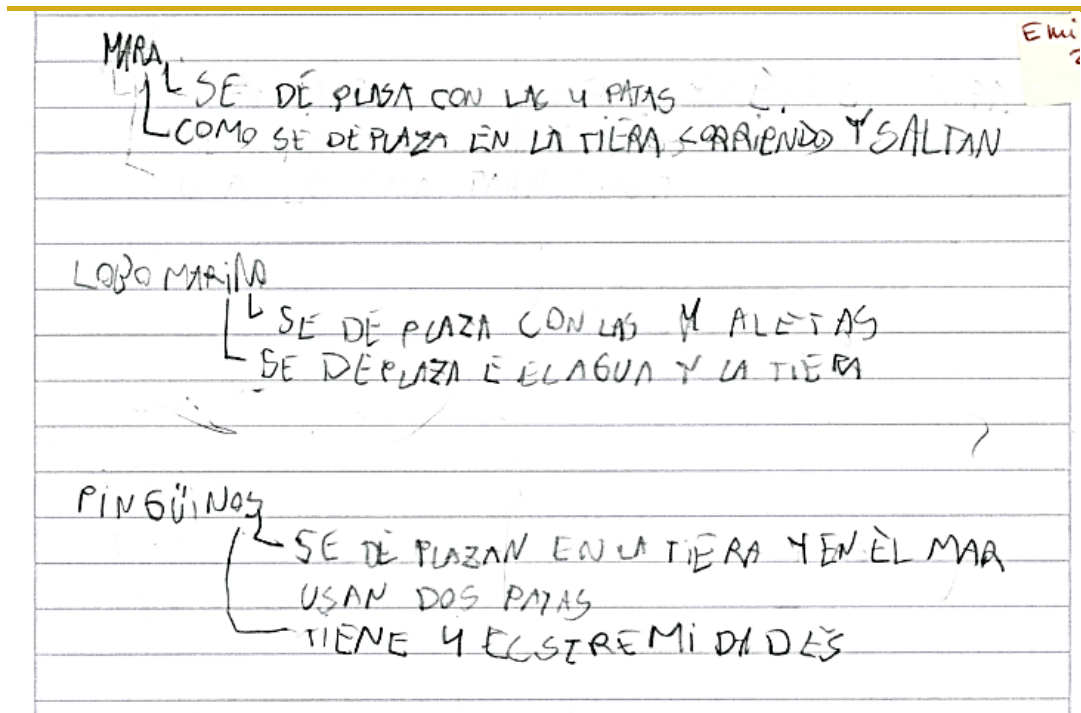 Emi
MARA
SE DE PLASA CON LAS 4 PATAS
COMO SE DEPLAZA EN LA TIERA CORRIENDO Y SALTAN
LOBO MARINO
SE DE PLAZA CON LAS 4 ALETAS
SE DEPLAZA E EL AGUA Y LA TIERA
PINGÜINOS
SE DE PLAZAN EN LA TIERA Y EN EL MAR
USAN DOS PATAS
TIENE 4 ECSTREMIDADES